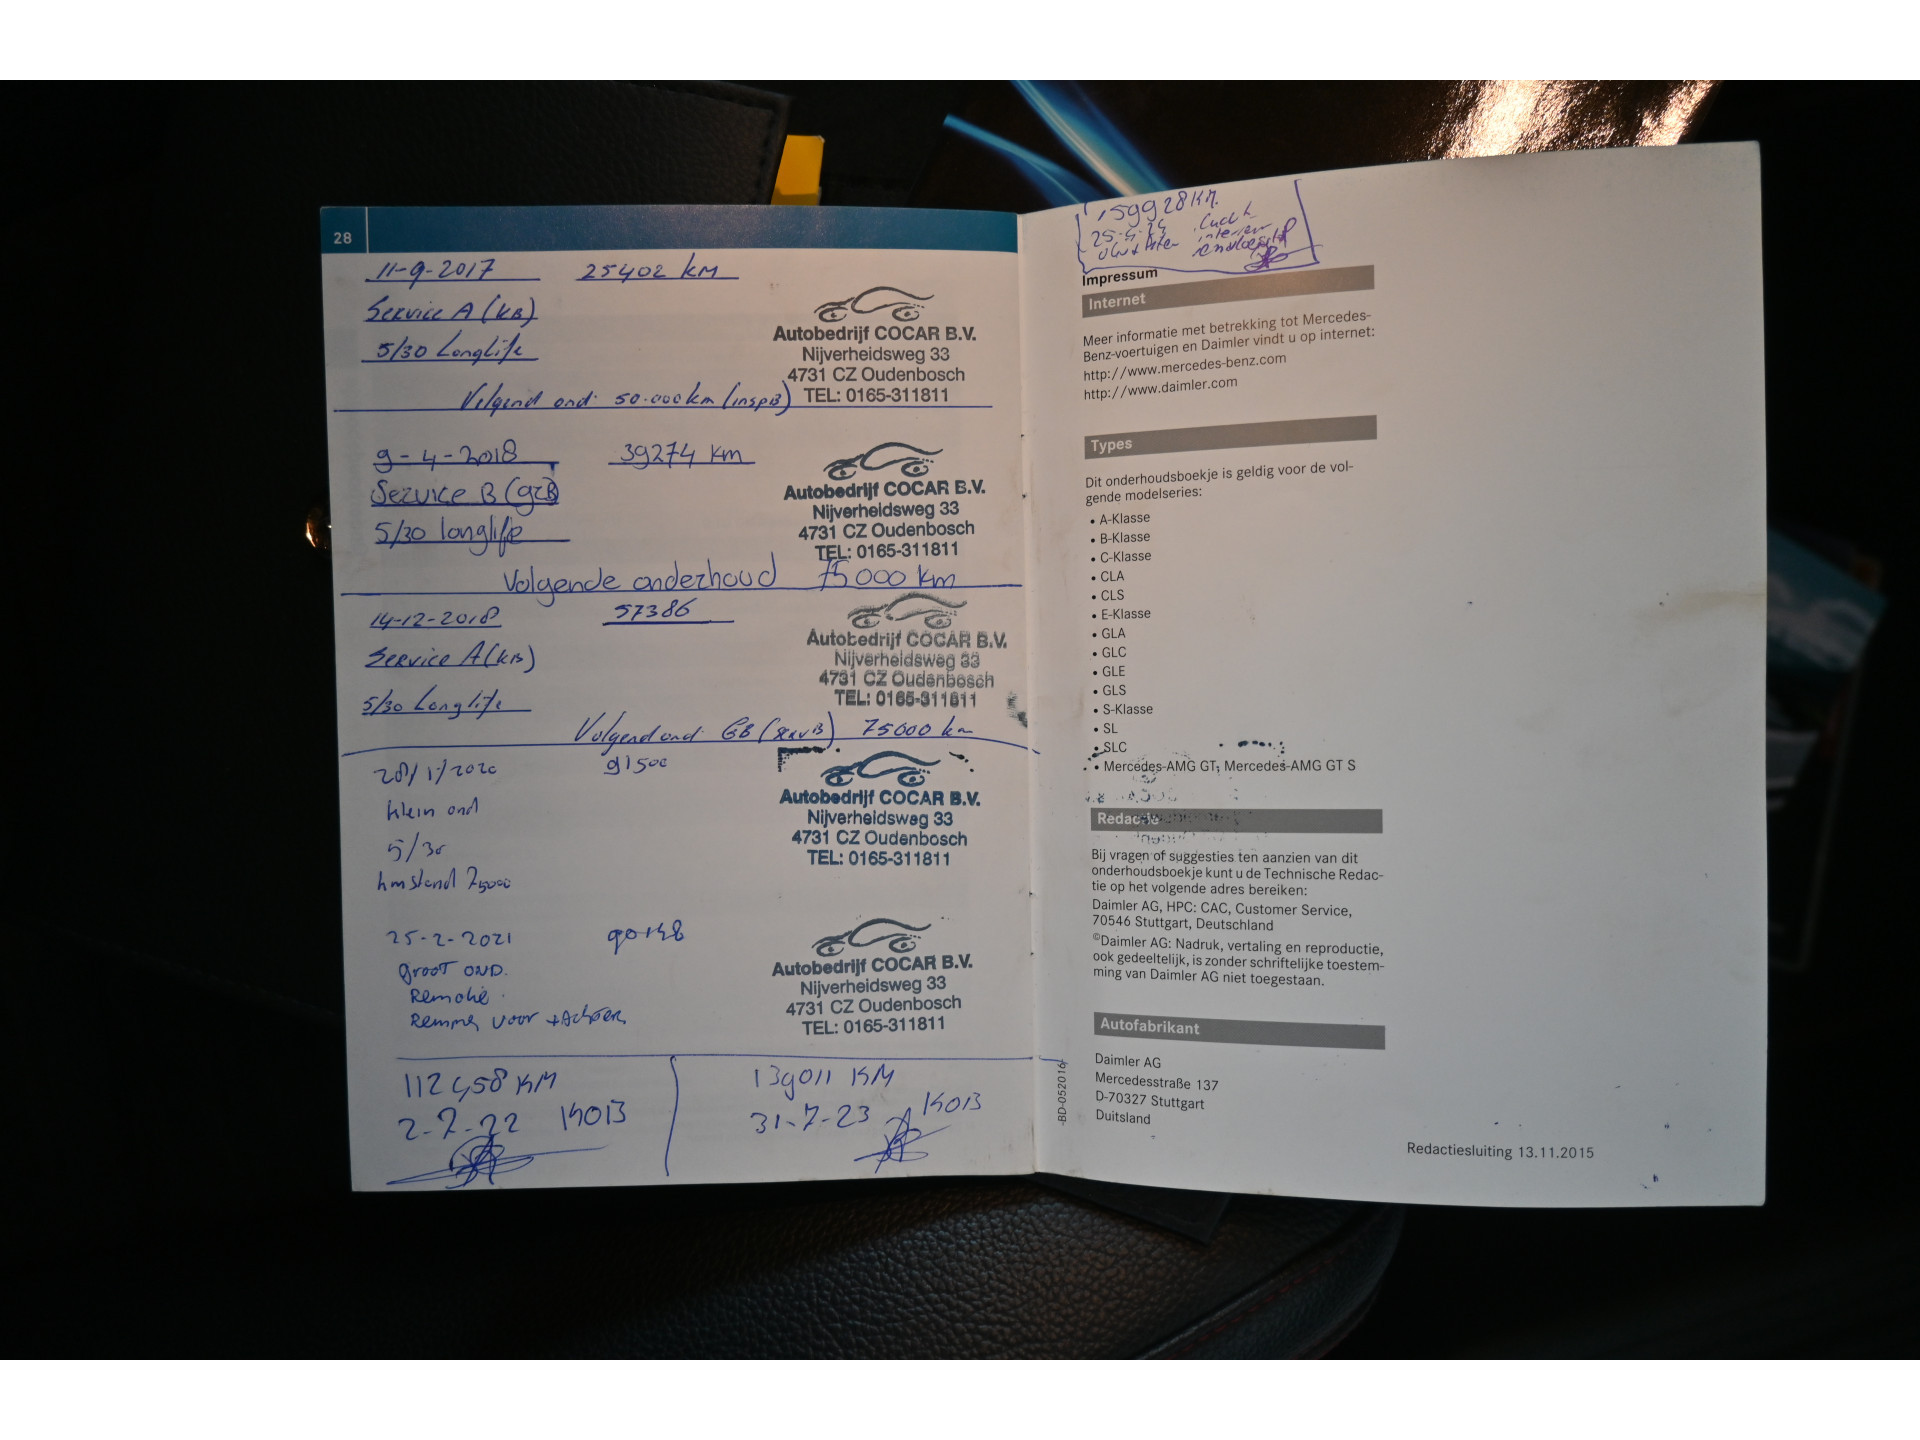 28
11-9-2017 25402 km
Service A (KB)
5/30 Longlife
Autobedrijf COCAR B.V.
Nijverheidsweg 33
4731 CZ Oudenbosch
TEL: 0165-311811
Volgend ond: 50.000km (inspB)
9-4-2018 39274 km
Service B (grB)
5/30 longlife
Autobedrijf COCAR B.V.
Nijverheidsweg 33
4731 CZ Oudenbosch
TEL: 0165-311811
Volgende onderhoud 75000 km
14-12-2018 57386
Service A (KB)
5/30 Longlife
Autobedrijf COCAR B.V.
Nijverheidsweg 33
4731 CZ Oudenbosch
TEL: 0165-311811
Volgend ond: GB (servB) 75000 km
28/1/2020 91500
klein ond
5/30
kmstand 75000
Autobedrijf COCAR B.V.
Nijverheidsweg 33
4731 CZ Oudenbosch
TEL: 0165-311811
25-2-2021
groot OND.
Remolie.
Remmen voor + Achter
Autobedrijf COCAR B.V.
Nijverheidsweg 33
4731 CZ Oudenbosch
TEL: 0165-311811
112458 KM
2-7-22 KOB
139011 KM
31-7-23 KOB
159928 KM.
25-4-24 Lucht
interieur
Impressum
Internet
Meer informatie met betrekking tot Mercedes-
Benz-voertuigen en Daimler vindt u op internet:
http://www.mercedes-benz.com
http://www.daimler.com
Types
Dit onderhoudsboekje is geldig voor de vol-
gende modelseries:
• A-Klasse
• B-Klasse
• C-Klasse
• CLA
• CLS
• E-Klasse
• GLA
• GLC
• GLE
• GLS
• S-Klasse
• SL
• SLC
• Mercedes-AMG GT, Mercedes-AMG GT S
Redactie
Bij vragen of suggesties ten aanzien van dit
onderhoudsboekje kunt u de Technische Redac-
tie op het volgende adres bereiken:
Daimler AG, HPC: CAC, Customer Service,
70546 Stuttgart, Deutschland
©Daimler AG: Nadruk, vertaling en reproductie,
ook gedeeltelijk, is zonder schriftelijke toestem-
ming van Daimler AG niet toegestaan.
Autofabrikant
Daimler AG
Mercedesstraße 137
D-70327 Stuttgart
Duitsland
-BD-052016-
Redactiesluiting 13.11.2015